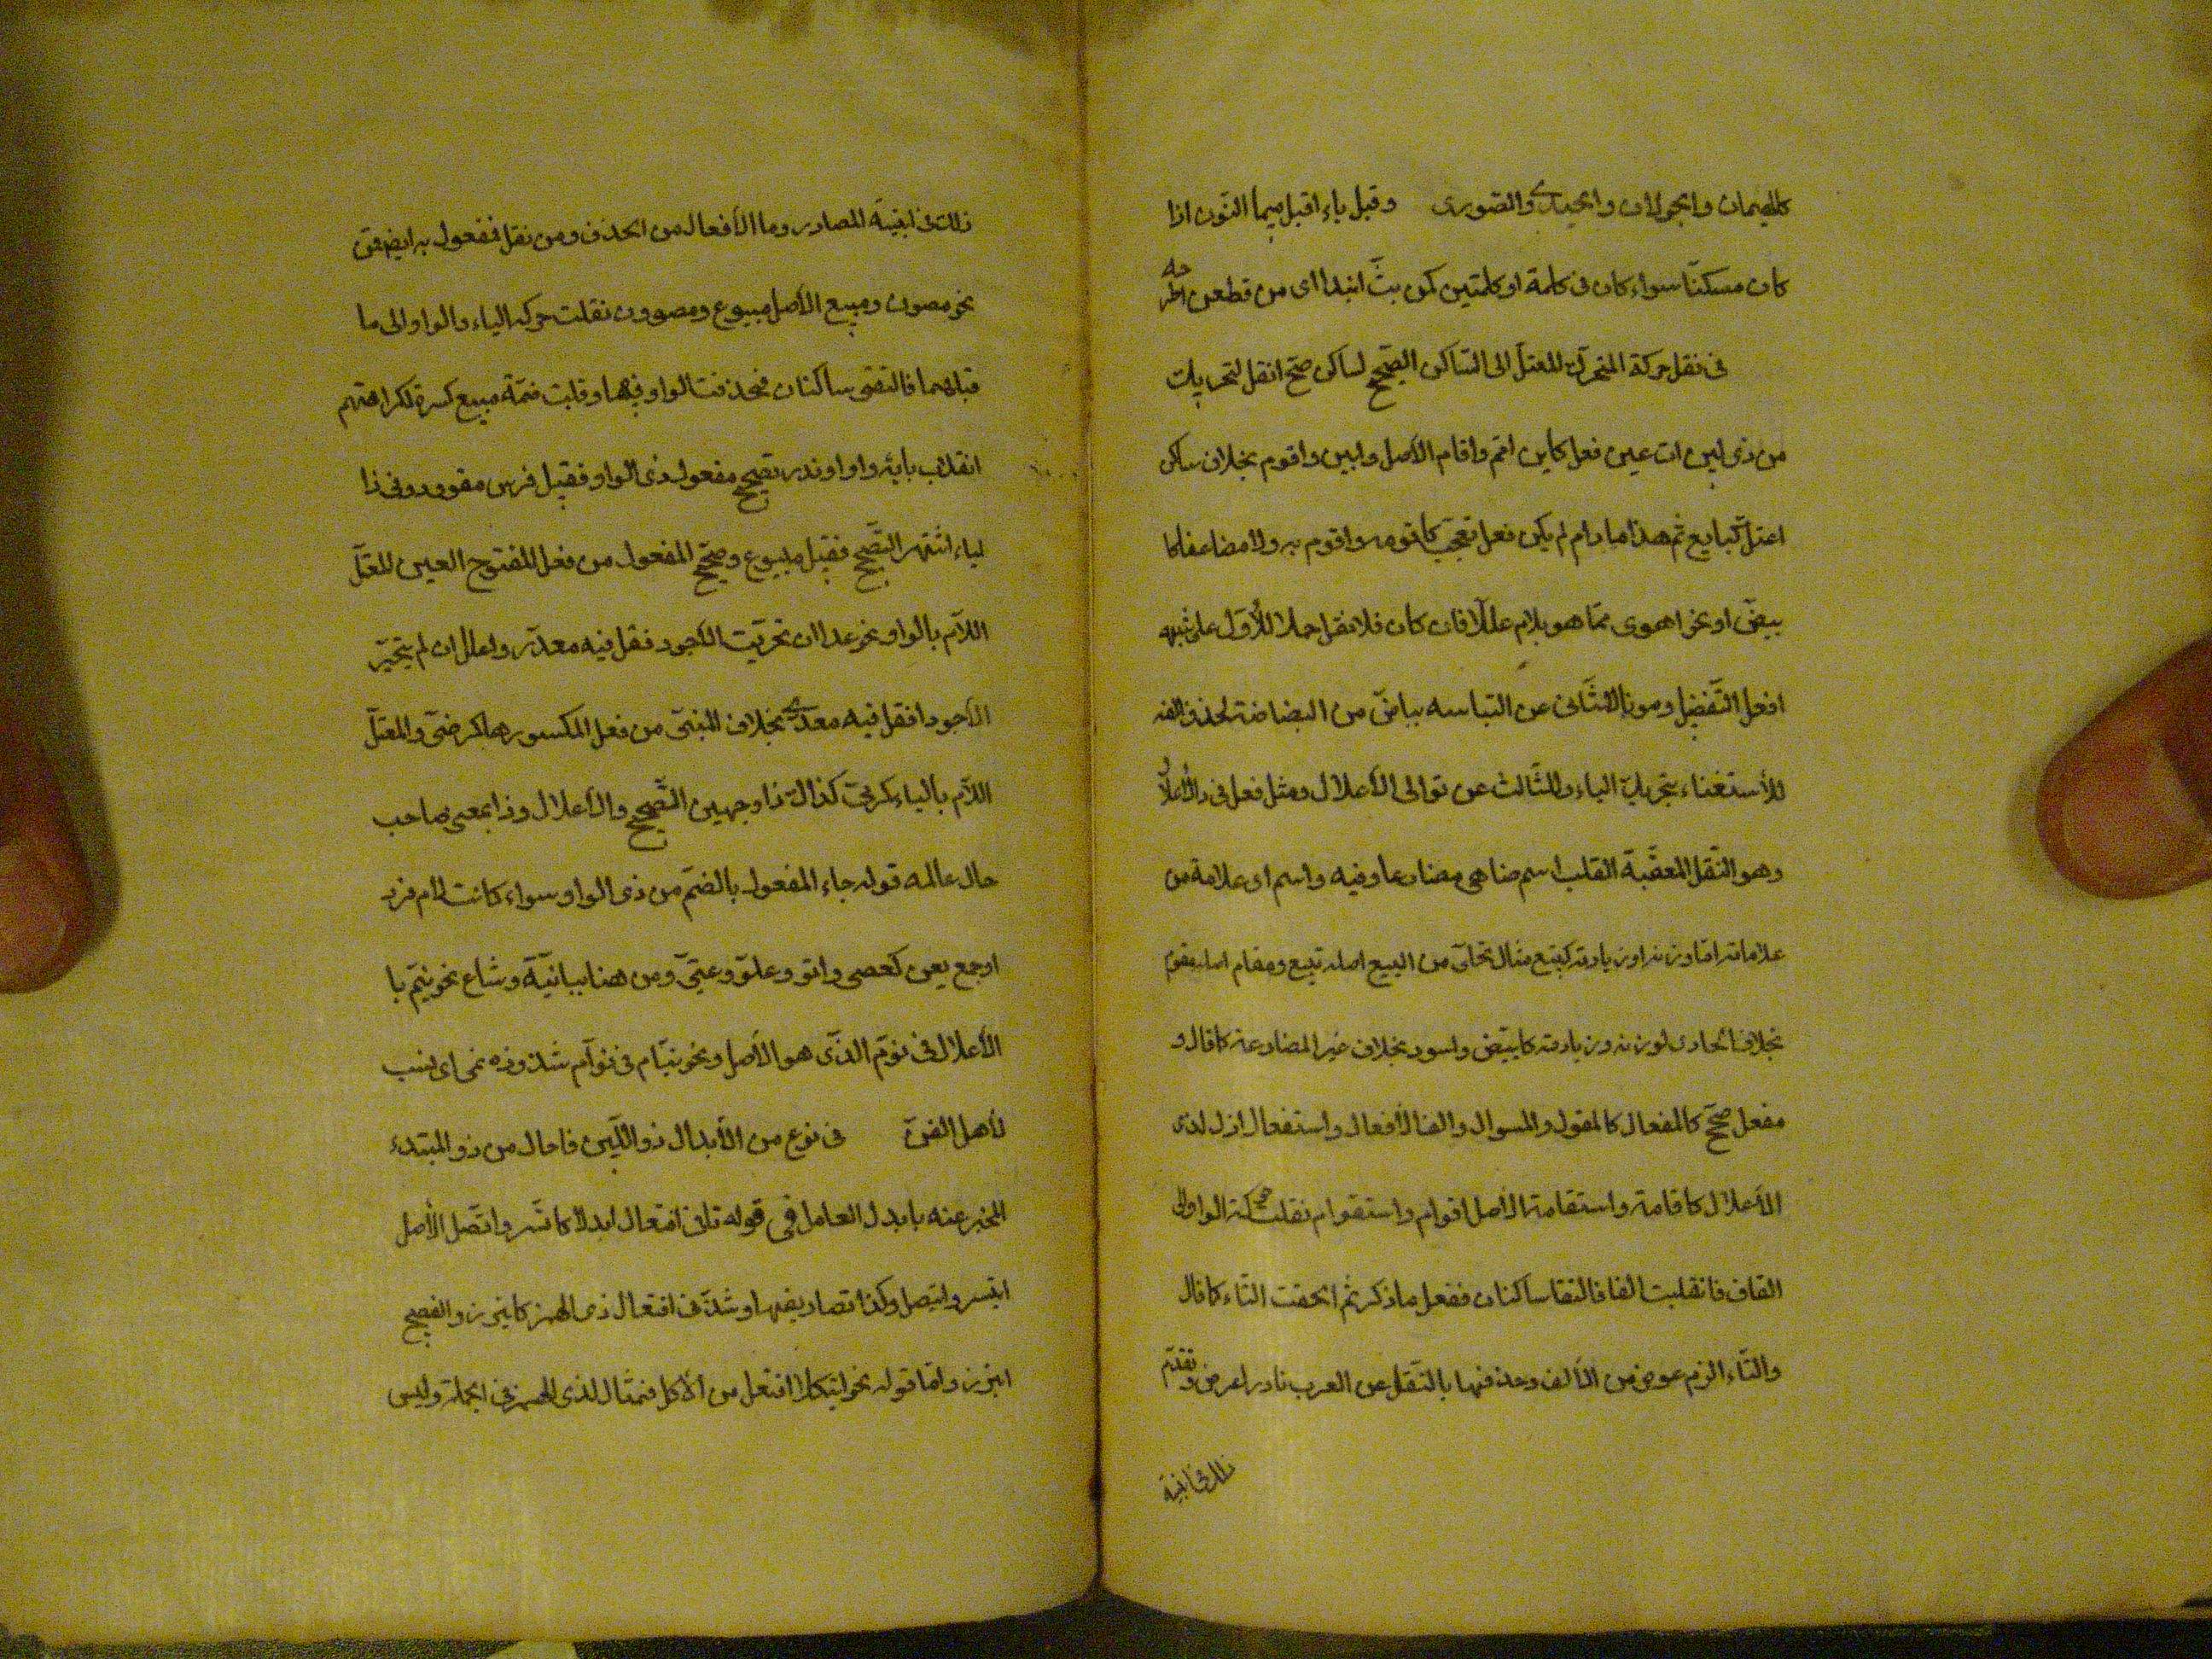 كالهيمان والجولان والحيدى والصورى وقبل باء اقبل ميما النون اذا
كان مسكنا سواء كان فى كلمة او كلمتين كمن بتّ انبذا اى من قطعن اطرحه
فى نقل حركة المتحرك المعتل الى الساكن الصحيح لساكن صحّ انقل التحريك
من ذى لين ات عين فعل كابن اقم واقام الاصل وابين واقوم بخلاف ساكن
اعتل كبايع ثم هذا ما دام لم يكن فعل تعجب كاقومه واقوم به ولا مضاعفا كا
بيضّ او نحو اهوى مما هو بلام عللا فان كان فلا نقل حملا للأول على شبهه
افعل التفضيل وصونا للثانى عن التباسه بباضّ من البضاضة لحذف الفه
للأستغناء بتحريك الياء وللثالث عن توالى الأعلال ومثل فعل فى ذا الأعلال
وهو النقل المعقبة القلب اسم ضاهى مضارعا وفيه واسم اى علامة من
علاماته اما وزنه او زيادته كتبيع مثال تحلئ من البيع اصله تبيع ومقام اصله مقوم
بخلاف الحاوى لوزنه وزيادته كابيض واسود بخلاف غير المضارعة كما قال و
مفعل صحّح كالمفعال كالمقول والمسوال والف الأفعال واستفعال ازل لذى
الأعلال كاقامة واستقامة الأصل اقوام واستقوام نقلت حركة الواو الى
القاف فانقلبت الفا فالتقا ساكنان ففعل ما ذكر ثم الحقت التاء كما قال
والتاء الزم عوض من الألف وحذفها بالنقل عن العرب نادرا عرض وتقدم
ذلك فى ابنية
ذلك فى ابنية المصادر وما الأفعال من الحذف ومن نقل فمفعول به ايضا قمن
نحو مصون ومبيع الأصل مبيوع ومصوون نقلت حركه الياء والواو الى ما
قبلهما فالتقى ساكنان فحذفت الواو فيهما وقلبت ضمّة مبيع كسرة لكراهتهم
انقلاب يائه واوا وندر تصحيح مفعول ذى الواو فقيل فرس مقوود وفى ذا
لياء اشتهر التصحيح فقيل مبيوع وصحح المفعول من فعل المفتوح العين المعتل
اللام بالواو نحو عدا ان تحريت الأجود فقل فيه معدوّ واعلل ان لم تتحرّ
الأجودا فقل فيه معدىّ بخلاف المبنى من فعل المكسورها كرضى والمعتل
اللام بالياء كرمى كذاك ذا وجهين التصحيح والأعلال وذا بمعنى صاحب
حال عامله قوله جاء المفعول بالضم من ذى الواو سواء كانت لام فرد
او جمع يعن كعصى وابو وعلوّ وعتىّ ومن هنا بيانيّة وشاع نحو نيّم با
الأعلال فى نوّم الذى هو الأصل ونحو نيّام فى نوّام شذوذه نمى اى نسب
لأهل الفن فى نوع من الأبدال ذو اللين فا حال من ذو المبتدء
المخبر عنه بابدل العامل فى قوله تا فى افتعال ابدلا كاتسر واتصل الأصل
ايتسر وايتصل وكذا تصاريفهما وشذ فى افتعال ذى الهمز كايتزر والفصيح
ايتزر واما قوله نحو ايتكلا افتعل من الأكل فمثال لذى الهمز فى الجملة وليس